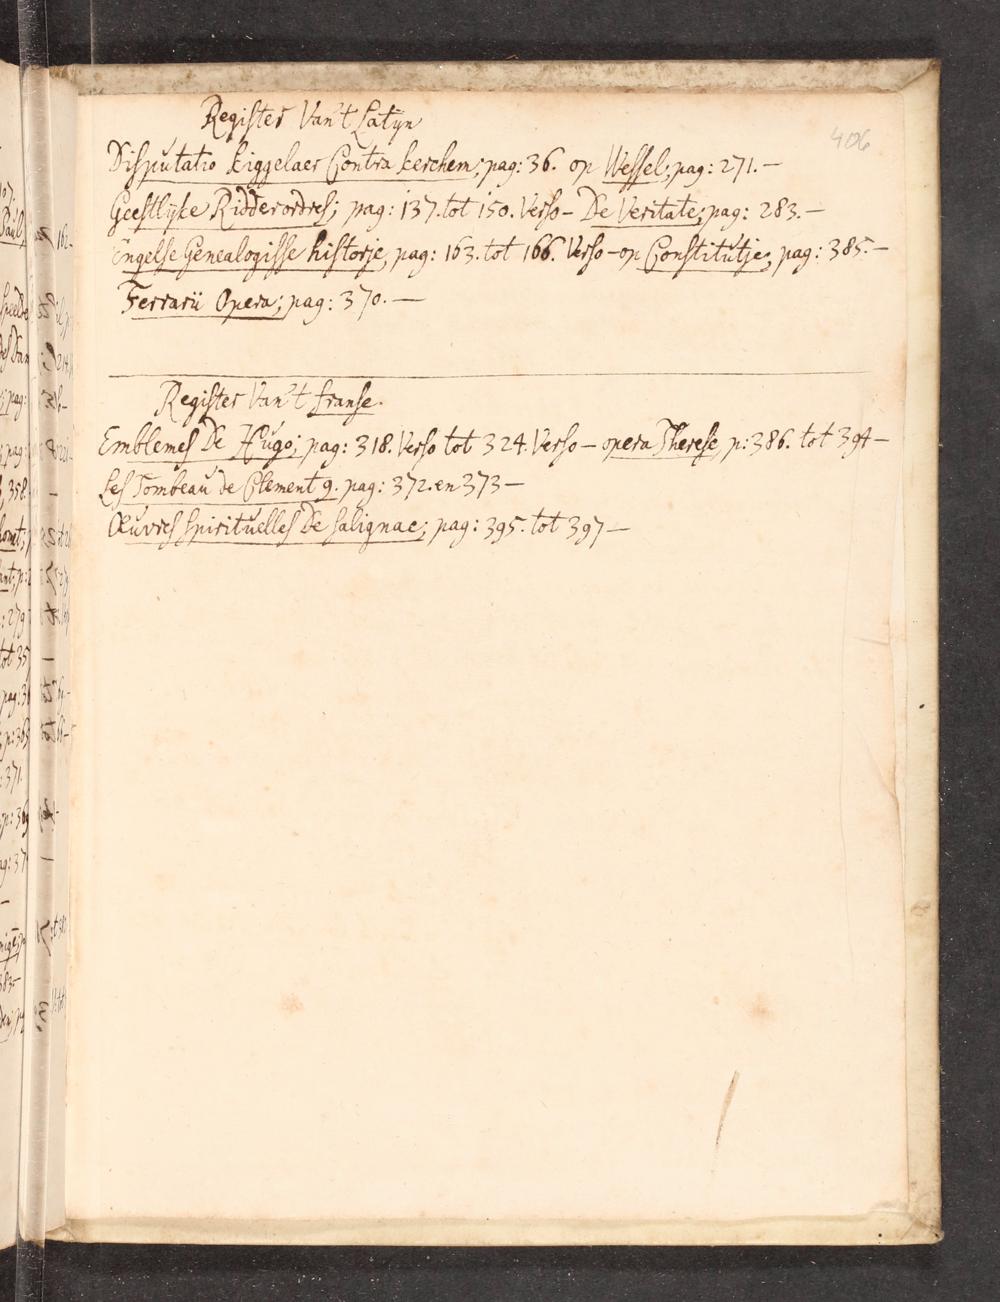 406
Register Van't Latyn
Disputatio kiggelaer Contra kerchem; pag: 36. op Wessel; pag: 271.—
Geestlyke Ridderordres; pag: 137. tot 150. Verso— De Veritate; pag: 283.—
Engelse Genealogisse historje, pag: 163. tot 166. Verso—op Constitutje; pag: 385.—
Ferrarii Opera; pag: 370.—
Register Van't franse.
Emblemes De Hugo; pag: 318. Verso tot 324. Verso— opera Therese, p: 386. tot 394—
Les Tombeau de Clement 9. pag: 372. en 373—
Œuvres Spirituelles De Salignac; pag: 395. tot 397—